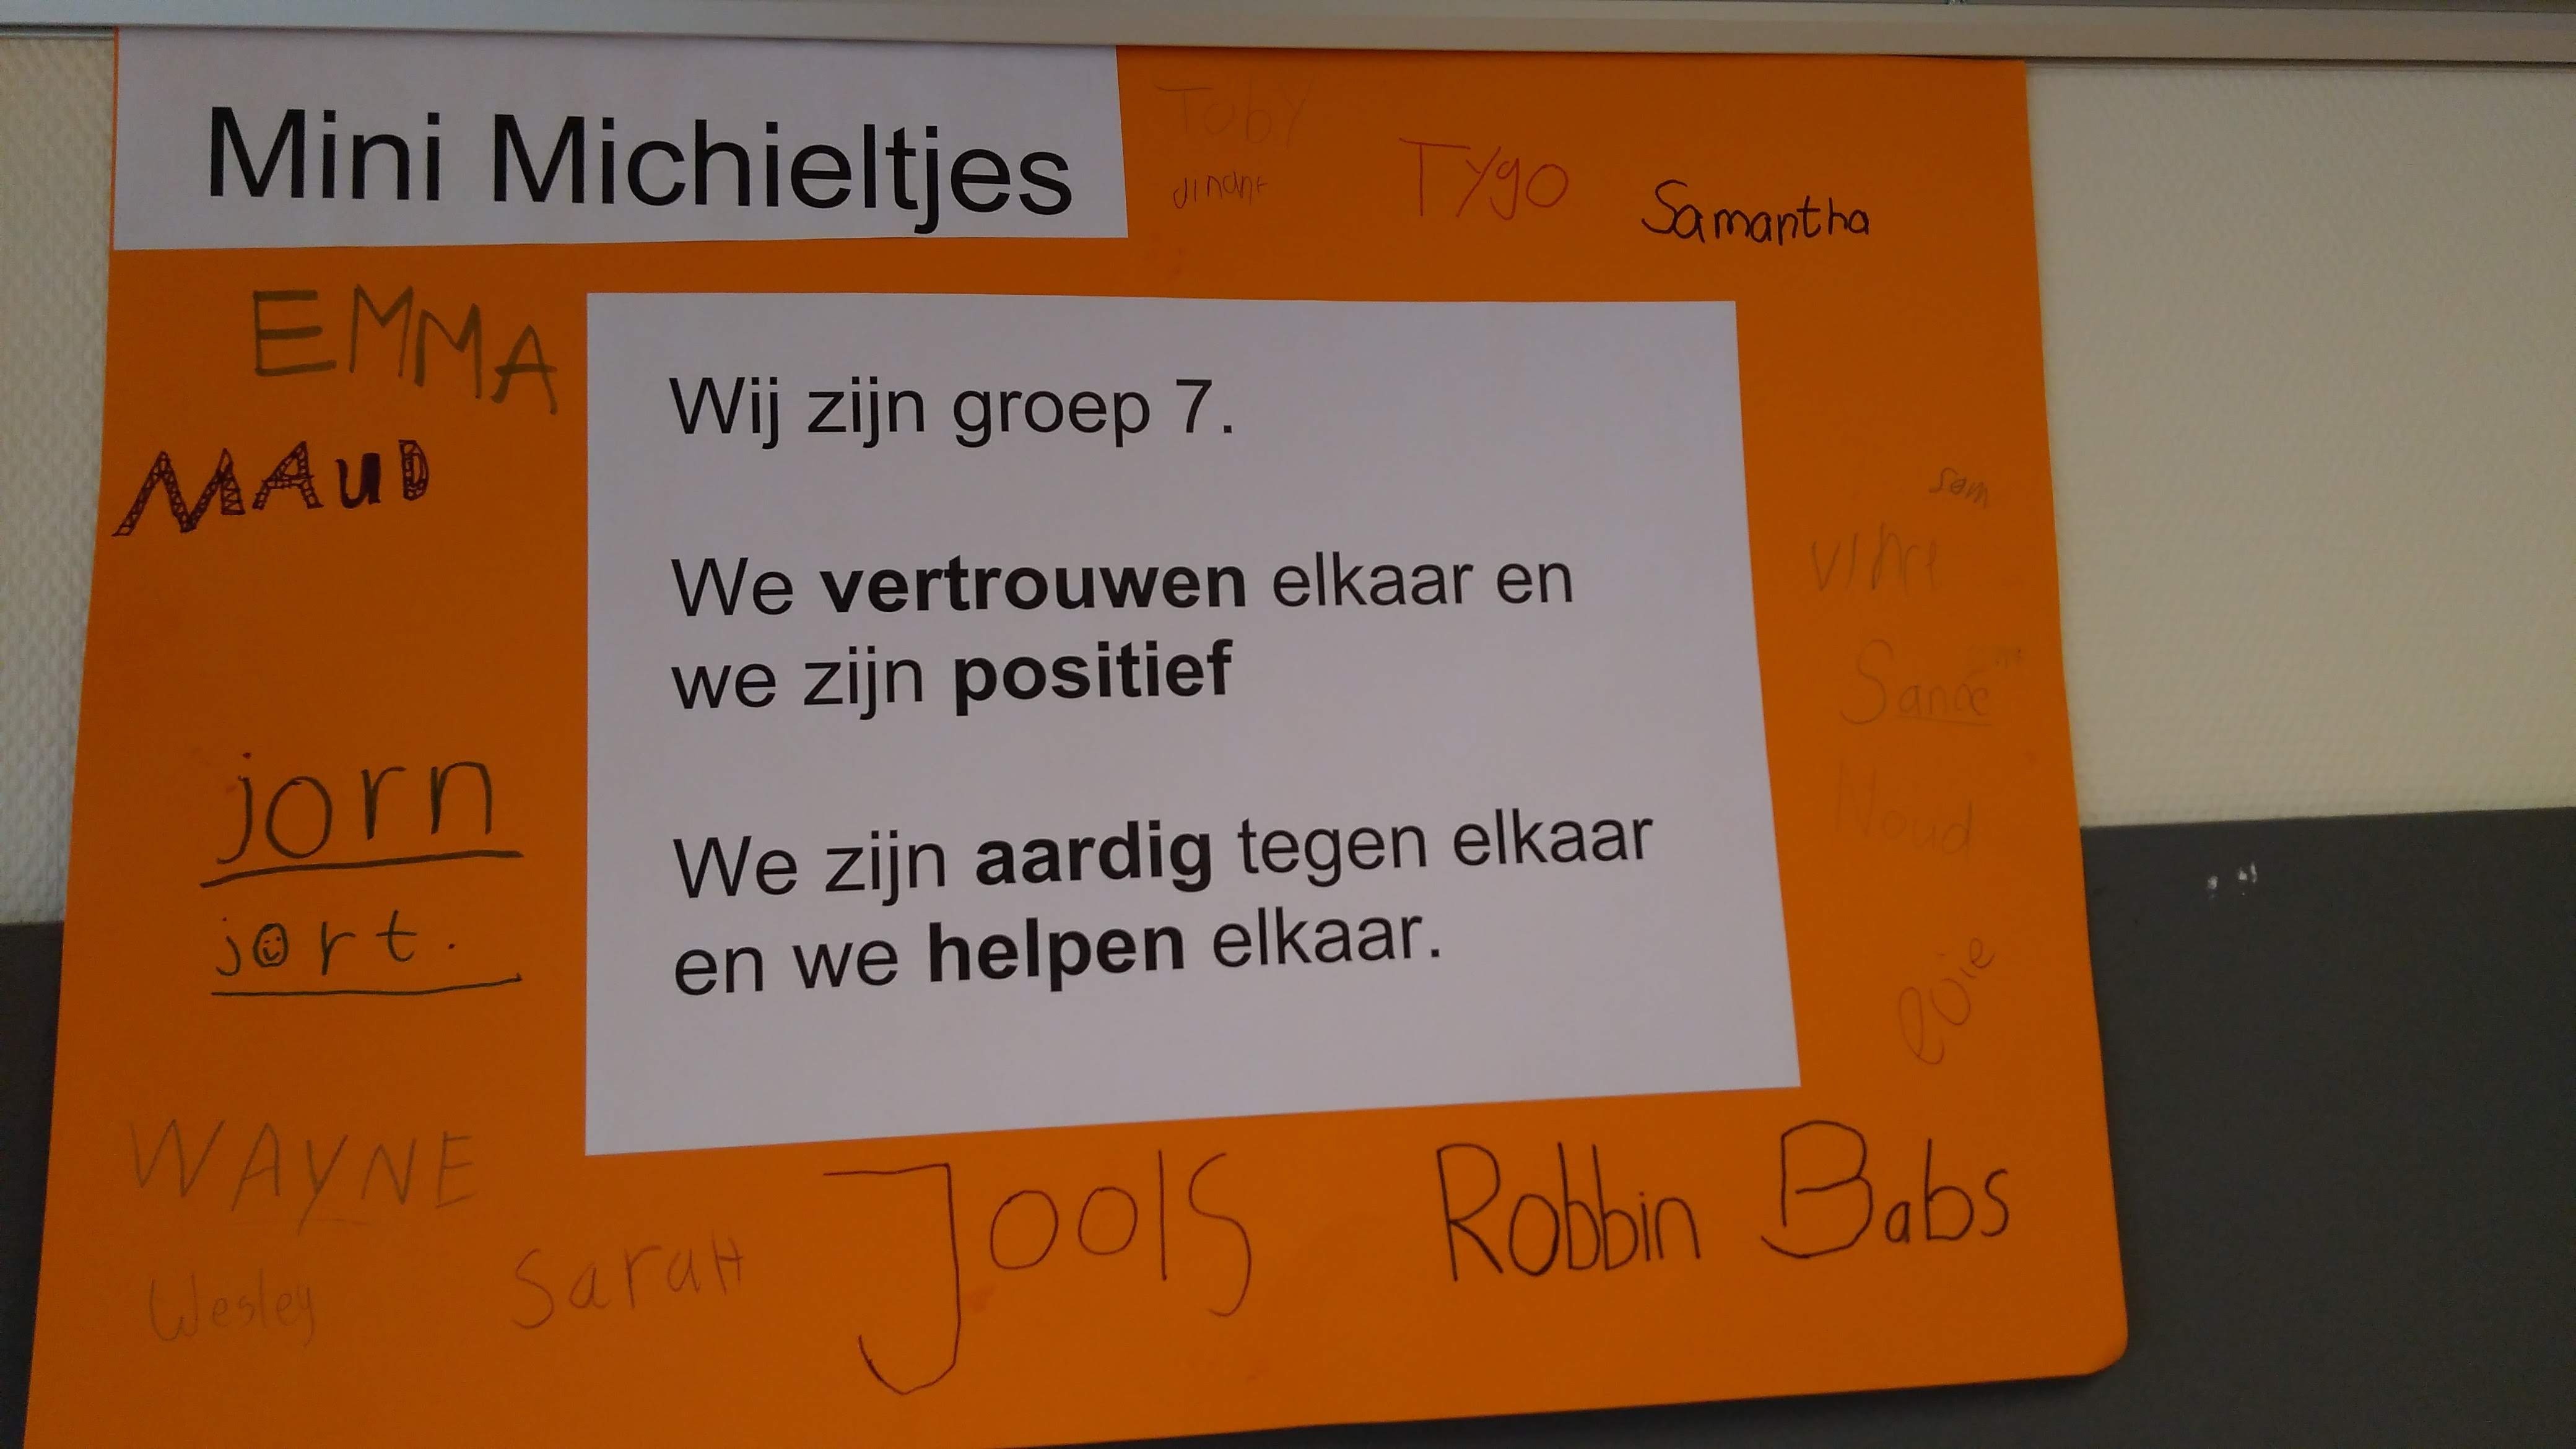 Mini Michieltjes
Toby
Tygo
Samantha
EMMA
MAUD
Wij zijn groep 7.
We vertrouwen elkaar en
we zijn positief
We zijn aardig tegen elkaar
en we helpen elkaar.
sem
Noud
jorn
jort.
WAYNE
Wesley
SaraH
Jools
Robbin
Babs